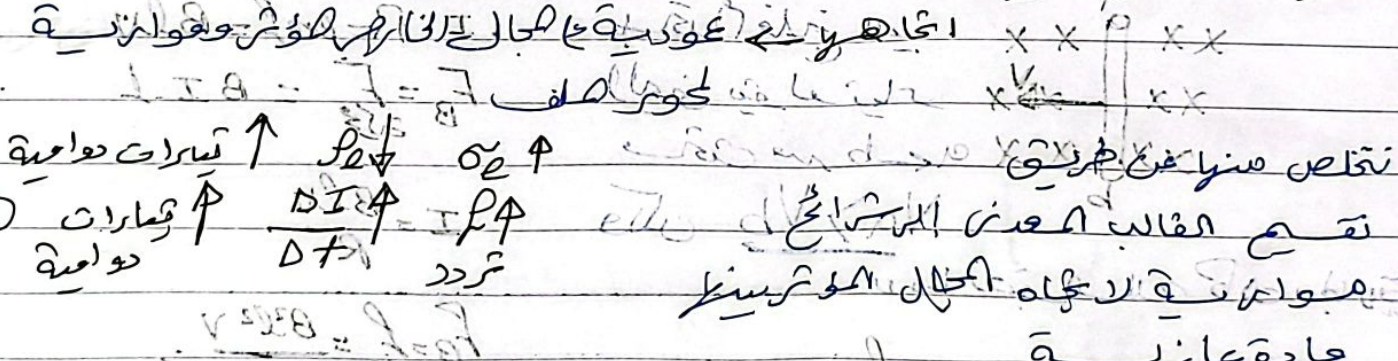 اتجاهها عمودية على المجال الخارجي المؤثر وموازية
لمحور الملف
نتخلص منها عن طريق σe ↑ ρe ↓ تيارات دوامية ↑
تقسيم القالب المعدني إلى شرائح f ↑ ΔI/Δt ↑ تيارات دوامية ↑
موازية لاتجاه المجال المؤثر بينها تردد
مادة عازلة